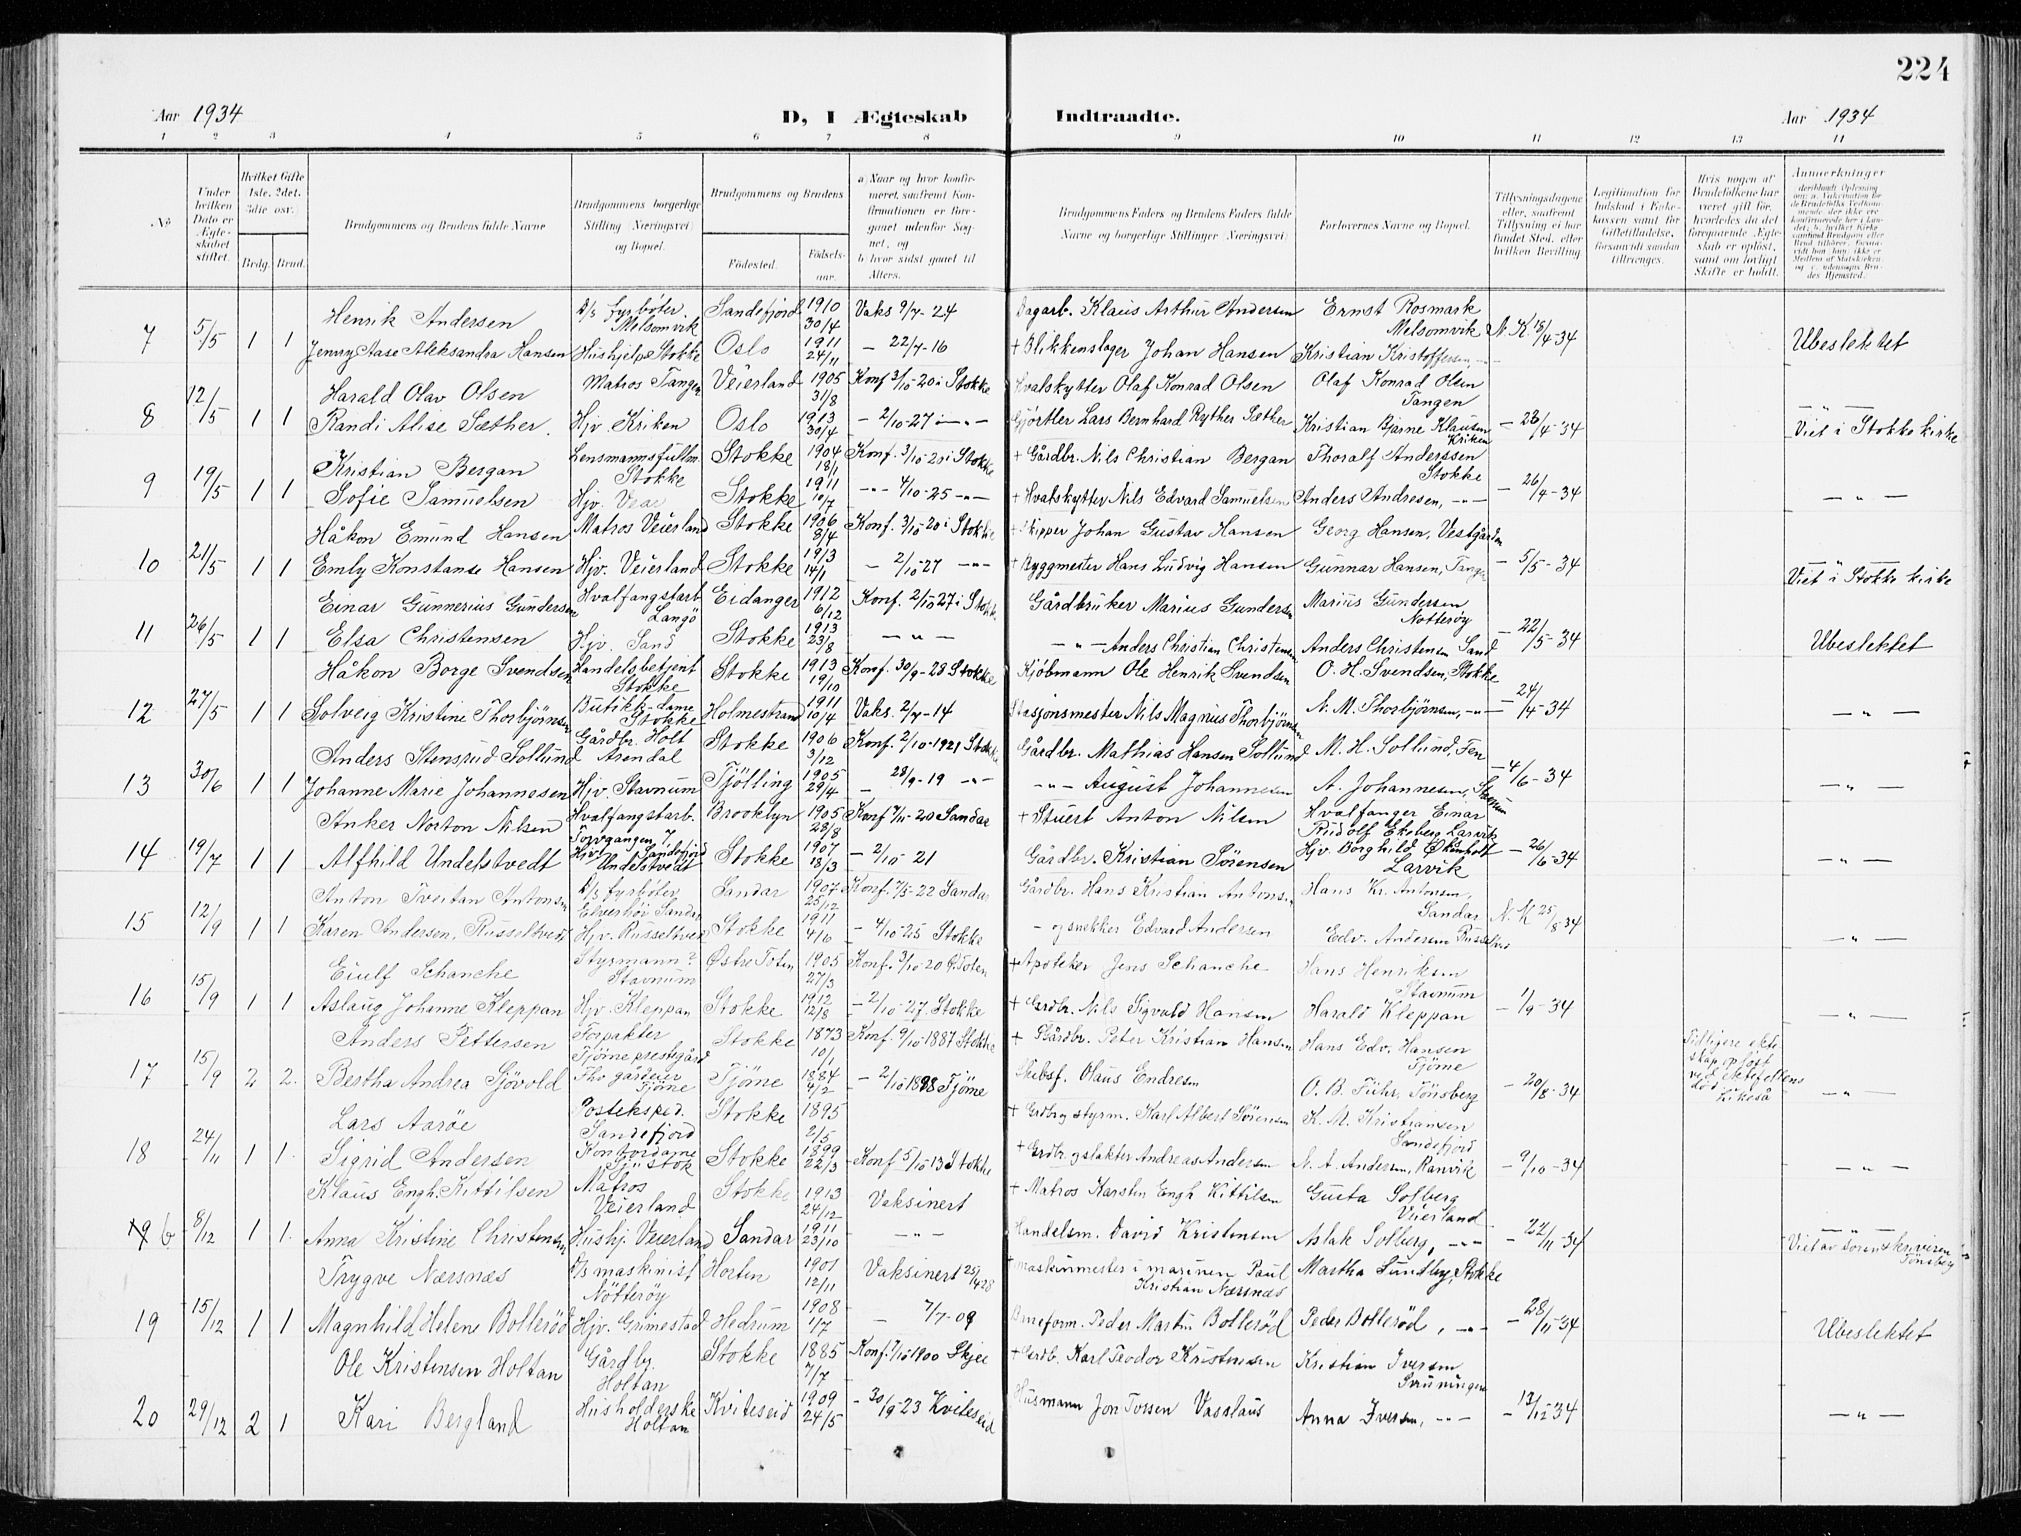 224
Aar 1934 D, I Ægteskab Indtraadte. Aar 1934
1 2 3 4 5 6 7 8 9 10 11 12 13 14
No
Under hvilken Dato er Ægteskabet stiftet.
Hvilket Gifte 1ste, 2det, 3die osv.
Brudg. Brud.
Brudgommens og Brudens fulde Navne
Brudgommens borgerlige Stilling (Næringsvei) og Bopæl.
Brudgommens og Brudens
Födested. Födsels-aar.
a) Naar og hvor konfirmeret, saafremt Konfirmationen er foregaaet udenfor Sognet, og b) hvor sidst gaaet til Alters.
Brudgommens Faders og Brudens Faders fulde Navne og borgerlige Stillinger (Næringsvei)
Forlovernes Navne og Bopæl.
Tillysningsdagene eller, saafremt Tillysning ei har fundet Sted, efter hvilken Bevilling
Legitimation for Indskud i Enkekassen samt for Giftetilladelse, forsaavidt saadan tiltrænges.
Hvis nogen af Brudefolkene har været gift før, hvorledes da det foregaaende Ægteskab er opløst, samt om lovligt Skifte er holdt.
Anmærkninger
7 5/5 1 1 Henrik Andersen D/s fyrbøter Melsomvik Sandefjord 1910 30/4 Vaks 9/7-24 Dagarb. Klaus Arthur Andersen Ernst Rosmark Melsomvik N.K. 15/4-34
Jenny Aase Aleksandra Hansen Hushjelp Stokke Oslo 1911 24/11 — 22/7-16 + Blikkenslager Johan Hansen Kristian Kristoffersen —"— Ubeslektet
8 12/5 1 1 Harald Olav Olsen Matros Tangen Veierland 1905 31/8 Konf 3/10-20 i Stokke Hvalskytter Olaf Konrad Olsen Olaf Konrad Olsen Tangen
Randi Alise Sæther Hjv. Kriken Oslo 1913 30/4 — 2/10-27 i —"— Gjørtler Lars Bernhard Ryther Sæther Kristian Bjarne Klausen Kriken — 23/4-34 —"— Viet i Stokke kirke
9 19/5 1 1 Kristian Bergan Lensmannsfullm. Stokke Stokke 1904 18/1 Konf. 3/10-20 i Stokke + Gårdbr. Nils Christian Bergan Thoralf Anderssen Stokke
Sofie Samuelsen Hjv. Vear Stokke 1911 10/7 —"— 4/10-25 —"— + Hvalskytter Nils Edvard Samuelsen Anders Andresen, —"— — 26/4-34 — " —
10 21/5 1 1 Håkon Emund Hansen Matros Veierland Stokke 1906 8/4 Konf. 3/10-20 i Stokke + Skipper Johan Gustav Hansen Georg Hansen, Vestgården
Emly Konstanse Hansen Hjv. Veierland Stokke 1913 14/1 — 2/10-27 —"— + Byggmester Hans Ludvig Hansen Gunnar Hansen, Tangen — 5/5-34 —"— Viet i Stokke kirke
11 26/5 1 1 Einar Gunnerius Gundersen Hvalfangstarb Langö Eidanger 1912 6/12 Konf. 2/10 27 i Stokke Gårdbruker Marius Gundersen Marius Gundersen Nøtterøy
Elsa Christensen Hjv. Sand Stokke 1913 23/8 — " — — " — Anders Christian Christensen Anders Christensen Sand — 22/5-34 Ubeslektet
12 27/5 1 1 Håkon Borge Svendsen Handelsbetjent Stokke Stokke 1913 19/10 Konf. 30/9-28 Stokke Kjöbmann Ole Henrik Svendsen O. H. Svendsen, Stokke
Solveig Kristine Thorbjörnsen Butikk-dame Stokke Holmestrand 1911 10/4 Vaks. 2/7-14 Stasjonsmester Nils Magnus Thorbjörnsen N. M. Thorbjörnsen, —"— — 24/4-34 — " —
13 30/6 1 1 Anders Stensrud Sollund Gårdbr. Holt Arendal Stokke 1906 3/12 Konf. 2/10-1921 Stokke Gårdbr. Mathias Hansen Sollund M. H. Sollund, Fen
Johanne Marie Johannesen Hjv. Stavnum Tjölling 1905 29/4 — 28/9-19 —"— —"— August Johannesen A. Johannesen, Stavnum — 4/6-34 — " —
14 19/7 1 1 Anker Norton Nilsen Hvalfangstarb. Torvgangen 7, Sandefjord Brooklyn 1905 28/8 Konf 7/11-20 Sandar + Stuert Anton Nilsen Hvalfanger Einar Rudolf Ekeberg Larvik
Alfhild Undelstvedt Hjv. Undelstvedt Stokke 1907 18/3 — 2/10-21 Gårdbr. Kristian Sörensen Hjv. Borghild Økenholt Larvik — 26/6-34 — " —
15 12/9 1 1 Anton Tveitan Antonsen D/s fyrböter Elverhöi Sandar Sandar 1907 25/12 Konf. 7/5-22 Sandar Gårdbr. Hans Kristian Antonsen Hans Kr. Antonsen, Sandar
Karen Andersen, Russeltvedt Hjv. Russeltvedt Stokke 1911 4/6 — 4/10-25 Stokke — og snekker Edvard Andersen Edv. Andersen N.K. 25/8 34 — " —
16 15/9 1 1 Eiulf Schanche Styrmann? Stavnum Østre Toten 1905 27/3 Konf. 3/10-20 Ö. Toten + Apoteker Jens Schanche Hans Henriksen Stavnum
Aslaug Johanne Kleppan Hjv. Kleppan Stokke 1912 12/8 — 2/10-27. Stokke + Grdbr. Nils Sigvald Hansen Harald Kleppan — 1/9-34 — " —
17 15/9 2 2. Anders Pettersen Forpakter Tjöme prestegård Stokke 1873 10/1 Konf. 9/10-1887 Stokke + Gårdbr. Peter Kristian Hansen Hans Edv. Hansen Tjöme
Bertha Andrea Sjövold Fhv gårdeier Tjöme Tjöme 1884 4/2 — 2/10 1898 Tjöme Skibsf. Olaus Endresen O. B. Führ, Tönsberg — 20/8-34 Tidligere ekteskap opløst ved ektefellens död. Likeså — " —
18 24/11 1 1. Lars Aaröe Posteksped. Sandefjord Stokke 1895 2/5 + Grdbr og styrm. Karl Albert Sörensen K. M. Kristiansen Sandefjord
Sigrid Andersen Kontordame Stokke 1899 22/3 — Konf 5/10-13 Stokke + Grdbr. og slakter Andreas Andersen N. A. Andersen, Ranvik — 9/10-34 — " —
19 b 8/12 1 1. Klaus Engh. Kittilsen Matros Veierland Stokke 1913 24/12 Vaksinert + Matros Karsten Engh Kittilsen Gusta Solberg Veierland
Anna Kristine Christensen Hushj. Veierland Sandar 1911 23/10 — " — Handelsm. David Kristensen Aslak Solberg, —"— — 22/11-34 —"— Viet av sorenskriveren i Tönsberg
19 15/12 1 1 Trygve Nærsnæs D/s maskinist Nötteröy Horten 1901 12/11 Vaksinert 25/4 28 + maskinmester i marinen Paul Kristian Nærsnæs Martha Sundby, Stokke
Magnhild Helene Bolleröd Hjv. Grimestad Hedrum 1908 1/7 — 7/7-09 Bruseform. Peder Martin Bolleröd Peder Bolleröd, —"— — 28/11-34 Ubeslektet
20 29/12 2 1 Ole Kristensen Holtan Gårdbr. Holtan Stokke 1885 7/7 Konf. 7/10 1900 Skjee + Grdb. Karl Teodor Kristensen Kristian Iversen
Kari Bergland Husholderske Holtan Kviteseid 1909 24/5 — 30/9-23 Kviteseid Husmann Jon Tossen Vasslaus Anna Iversen, —"— — 13/12 34 — " —